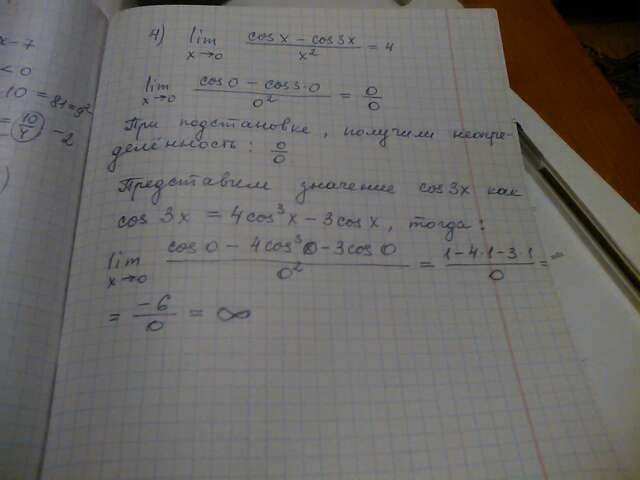 4) lim x→0 (cos x − cos 3x)/x² = 4
lim x→0 (cos 0 − cos 3·0)/0² = 0/0
При подстановке, получили неопре-
делённость: 0/0
Представим значение cos 3x как
cos 3x = 4cos³x − 3cos x, тогда:
lim x→0 (cos 0 − 4cos³0 − 3cos 0)/0² = (1−4·1−3·1)/0 =
= −6/0 = ∞
x − 7
< 0
10 = 81 = 9²
= 10 − 2
)